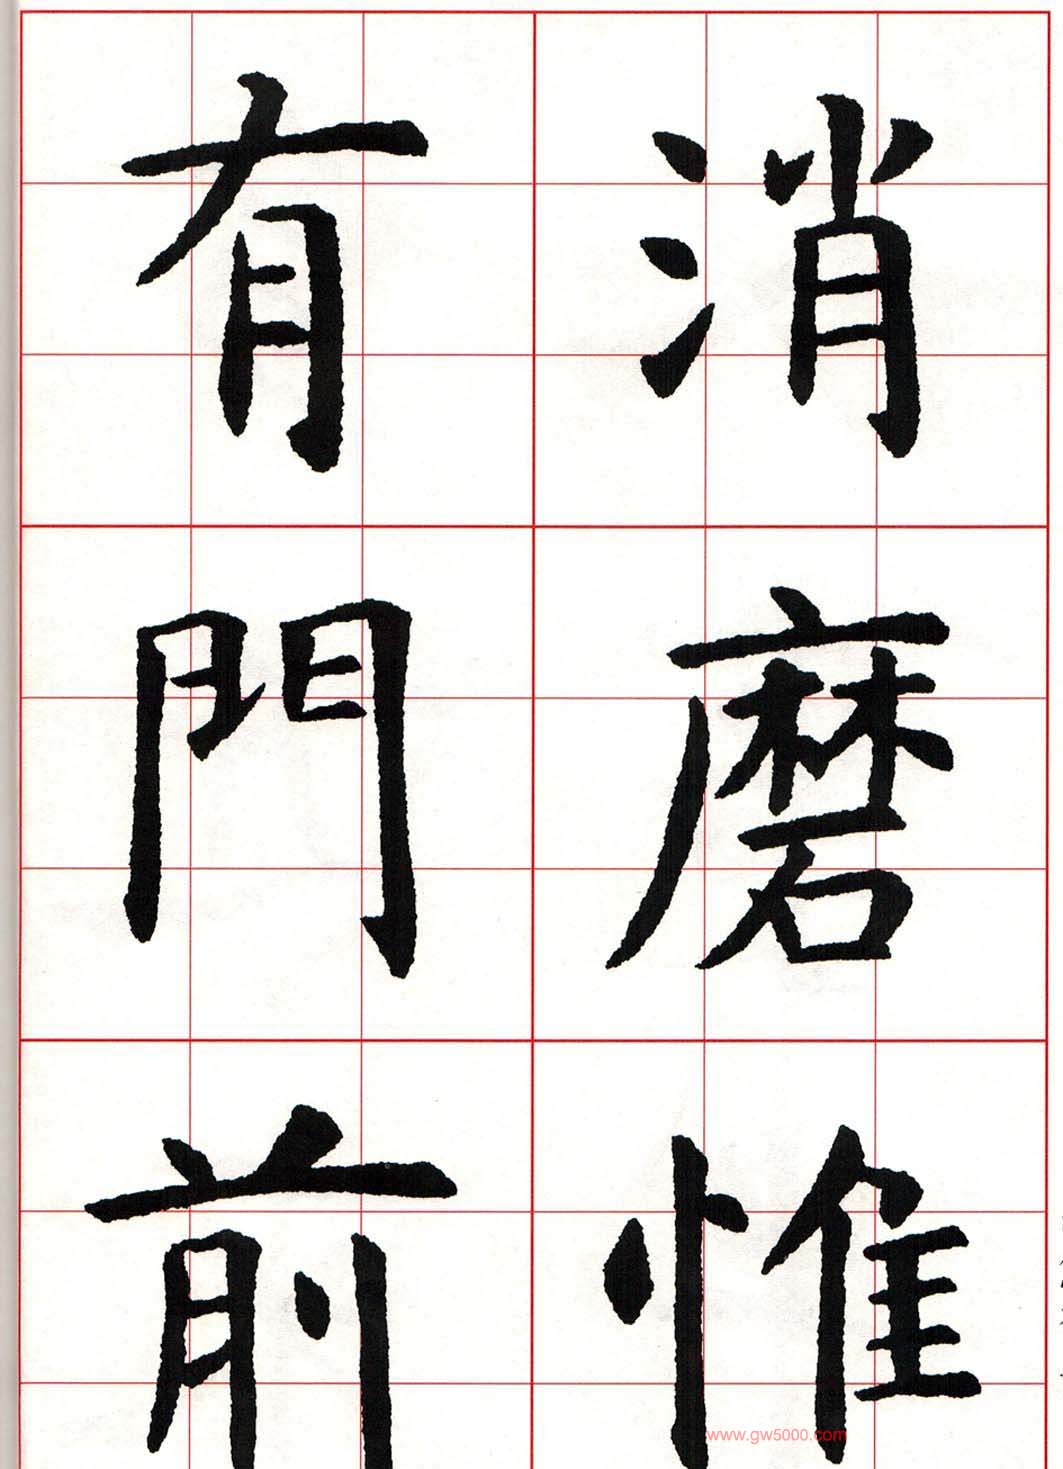 消磨惟
有門前
www.gw5000.com